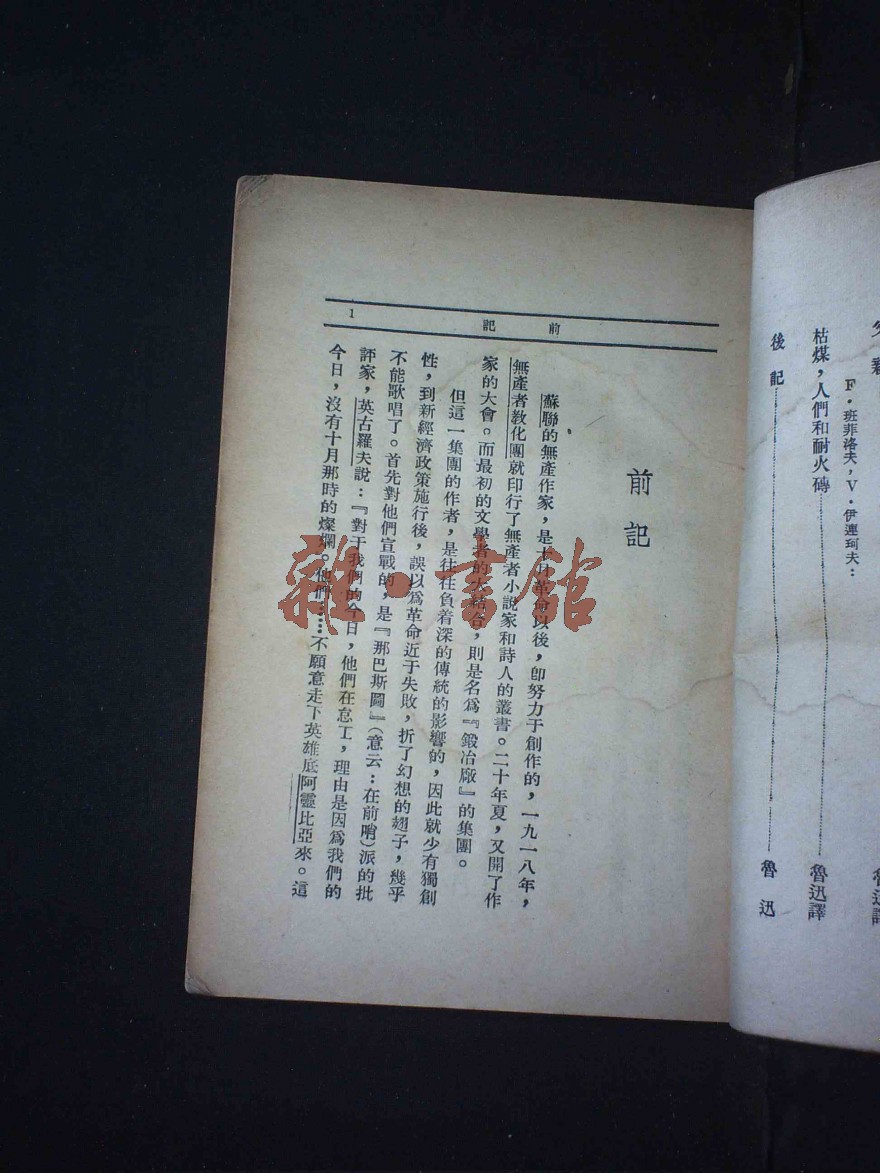 枯煤，人們和耐火磚……魯迅譯
F·班菲洛夫，V·伊連珂夫：
後記……魯迅
前記
1
前記
蘇聯的無產作家，是十月革命以後，卽努力于創作的，一九一八年，
無產者敎化團就印行了無產者小說家和詩人的叢書。二十年夏，又開了作
家的大會。而最初的文學者的大結合，則是名爲『鍛冶廠』的集團。
但這一集團的作者，是往往負着深的傳統的影響的，因此就少有獨創
性，到新經濟政策施行後，誤以爲革命近于失敗，折了幻想的翅子，幾乎
不能歌唱了。首先對他們宣戰的，是『那巴斯圖』（意云：在前哨）派的批
評家，英古羅夫說：『對于我們的今日，他們在怠工，理由是因爲我們的
今日，沒有十月那時的燦爛。他們……不願意走下英雄底阿靈比亞來。這
雜·書館